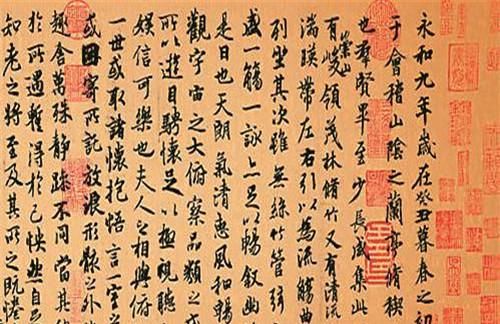 永和九年歲在癸丑暮春之初
于會稽山陰之蘭亭脩稧
也羣賢畢至少長咸集此
有崇山峻領茂林脩竹又有清流
湍暎帶左右引以為流觴曲
列坐其次雖無絲竹管弦
盛一觴一詠亦足以暢敘幽
是日也天朗氣清惠風和暢
觀宇宙之大俯察品類之
所以遊目騁懷足以極視聽
娛信可樂也夫人之相與俯
一世或取諸懷抱悟言一室之
或因寄所託放浪形骸之外
趣舍萬殊靜躁不同當其
於所遇暫得於己怏然自
知老之將至及其所之既惓